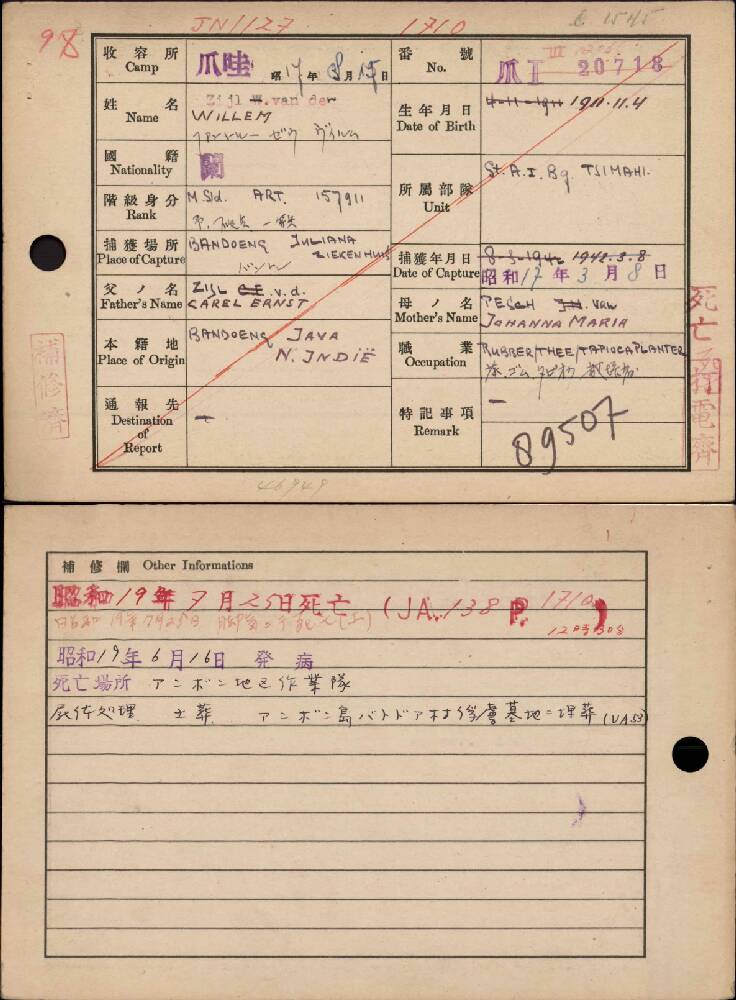 98 JN1127 1710
収容所 Camp 爪哇 昭17年8月15日
番號 No. 爪I 20718
姓名 Name Zijl W. van der
WILLEM
生年月日 Date of Birth 4-11-1911 1911.11.4
國籍 Nationality 蘭
階級身分 Rank M Sld. ART. 157911
所属部隊 Unit St. A.I. Bg. TSIMAHI.
捕獲場所 Place of Capture BANDOENG JULIANA ZIEKENHUIS
バンドン
捕獲年月日 Date of Capture 8-3-1942 1942.3.8
昭和17年3月8日
父ノ名 Father's Name ZIJL C.E. v.d.
CAREL ERNST
母ノ名 Mother's Name PESCH J.M. van
JOHANNA MARIA
本籍地 Place of Origin BANDOENG JAVA
N. INDIË
職業 Occupation RUBBER/THEE/TAPIOCA PLANTER
通報先 Destination of Report —
特記事項 Remark —
89507
46949
補修濟
死亡
打電濟
補修欄 Other Informations
昭和19年7月25日死亡 (JA. 138 P. 1710)
昭和19年7月25日
12時30分
昭和19年6月16日 発病
死亡場所 アンボン地区作業隊
屍体処理 土葬 アンボン島バトドア村俘虜墓地ニ埋葬 (UA53)